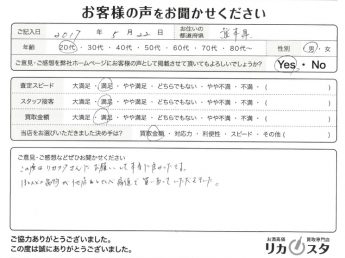 お客様の声をお聞かせください
ご記入日 2017 年 5 月 22 日 お住いの都道府県
年齢 20代・30代・40代・50代・60代・70代・80代〜 性別 男・女
ご意見・ご感想を弊社ホームページにお客様の声として掲載させて頂いてもよろしいでしょうか? Yes・No
査定スピード 大満足・満足・やや満足・どちらでもない・やや不満・不満・( )
スタッフ接客 大満足・満足・やや満足・どちらでもない・やや不満・不満・( )
買取金額 大満足・満足・やや満足・どちらでもない・やや不満・不満・( )
当店をお選びいただきました決め手は? 買取金額・対応力・利便性・スピード・その他( )
ご意見・ご感想などぜひお聞かせください
この度はリカスタさんにお願いして本当に良かったです。
他店 高値で買い取っていただきました。
ご協力ありがとうございました。
この度は誠にありがとうございました。
お酒高価 買取専門店
リカスタ